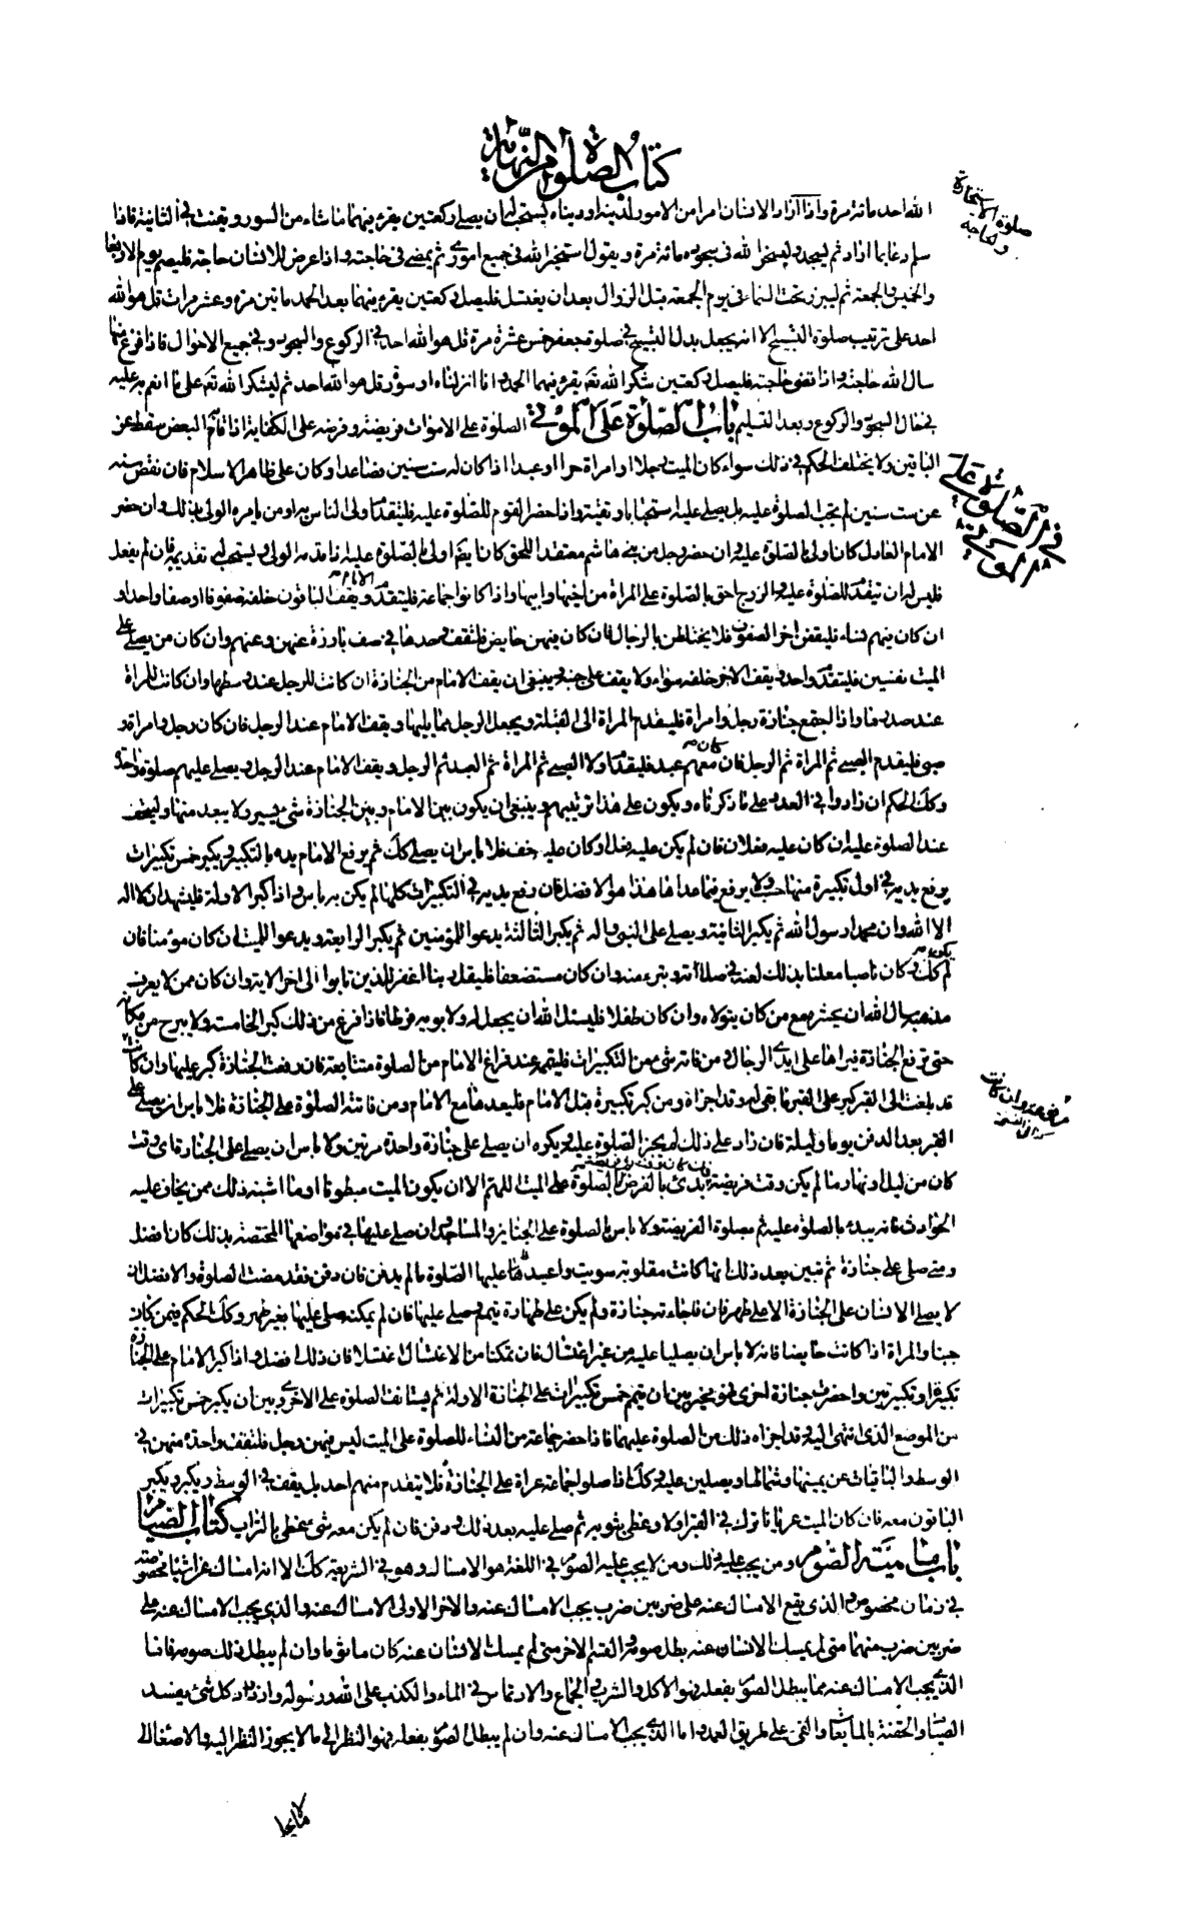 كتاب الصلوة من النهاية
صلوة الاستخارة
والحاجة
الله احد مائة مرة واذا اراد الانسان امرا من الامور لدينه او دنياه يستحب له ان يصلي ركعتين يقرء فيهما ما شاء من السور ويقنت في الثانية فاذا
سلم دعا بما اراد ثم ليسجد وليستخر الله في سجوده مائة مرة ويقول استخير الله في جميع اموري ثم يمضي في حاجته واذا عرض للانسان حاجة فليصم يوم الاربعا
والخميس والجمعة ثم ليبرز تحت السماء في يوم الجمعة قبل الزوال بعد ان يغتسل فليصل ركعتين يقرء فيهما بعد الحمد مائتين مرة وعشر مرات قل هو الله
احد على ترتيب صلوة التسبيح الا انه يجعل بدل التسبيح في صلوة جعفر خمس عشرة مرة قل هو الله احد في الركوع والسجود وفي جميع الاحوال فاذا فرغ منها
سال الله حاجته واذا قضى حاجته فليصل ركعتين شكر الله تعم يقرء فيهما الحمد وانا انزلناه او سورة قل هو الله احد ثم ليشكر الله تعم على ما انعم به عليه
في حال السجود والركوع وبعد التسليم باب الصلوة على الموتى الصلوة على الاموات فريضة وفرضه على الكفاية اذا قام البعض سقط عن
الباقين ولا يختلف الحكم في ذلك سواء كان الميت رجلا او امراة حرا او عبدا اذا كان له ست سنين فصاعدا وكان على ظاهر الاسلام فان نقص سنه
في الصلوة على
الموتى
عن ست سنين لم يجب الصلوة عليه بل يصلى عليه استحبابا وتقية واذا حضر القوم للصلوة عليه فليتقدم اولى الناس به او من يامره الولي بذلك وان حضر
الامام العادل كان اولى بالصلوة عليه وان حضر رجل من بني هاشم معتقدا للحق كان ايضم اولى بالصلوة عليه اذا قدمه الولي ويستحب له تقديمه فان لم يفعل
فليس له ان يتقدم للصلوة عليه والزوج احق بالصلوة على المراة من اخيها وابيها واذا كانوا جماعة فليتقدم الامام ويقف الباقون خلفه صفوفا او صفا واحدا و
ان كان فيهم نساء فليقفن اخر الصفوف فلا يختلطن بالرجال فان كان فيهن حايض فلتقف وحدها في صف بارزة عنهن وعنهم وان كان من يصلي على
الميت نفسين فليتقدم واحد ويقف الاخر خلفه سواء ولا يقف على جنبه وينبغي ان يقف الامام من الجنازة ان كانت للرجل عند وسطها وان كانت للمراة
عند صدرها واذا اجتمع جنازة رجل وامراة فليقدم المراة الى القبلة ويجعل الرجل مما يليها ويقف الامام عند الرجل فان كان رجل وامراة و
صبي فليقدم الصبي ثم المراة ثم الرجل فان كان معهم عبد فليقدم اولا الصبي ثم المراة ثم العبد ثم الرجل ويقف الامام عند الرجل ويصلي عليهم صلوة واحدة
وكك الحكم ان زادوا في العدد على ما ذكرناه ويكون على هذا ترتيبهم وينبغي ان يكون بين الامام وبين الجنازة شئ يسير ولا يبعد منها وليتحف
عند الصلوة عليه ان كان عليه نعلان فان لم يكن عليه نعل او كان عليه خف فلا باس ان يصلي كك ثم يرفع الامام يده بالتكبير ويكبر خمس تكبيرات
يرفع يديه في اول تكبيرة منها حسب ولا يرفع فيما عداها هذا هو الافضل فان رفع يديه في التكبيرات كلها لم يكن به باس واذا كبر الاولة فليشهد ان لا اله
الا الله وان محمدا رسول الله ثم يكبر الثانية ويصلي على النبي واله ثم يكبر الثالثة يدعو للمؤمنين ثم يكبر الرابعة ويدعو للميت ان كان مؤمنا فان
لم يكن كك وكان ناصبا معلنا بذلك لعنه في صلاته وتبرء منه وان كان مستضعفا فليقل ربنا اغفر للذين تابوا الى اخر الاية وان كان ممن لا يعرف
مذهبه سال الله ان يحشره مع من كان يتولاه وان كان طفلا فليسئل الله ان يجعل له ولابويه فرطا فاذا فرغ من ذلك كبر الخامسة ولا يبرح من مكانه
حتى ترفع الجنازة فيراها على ايدي الرجال ومن فاته شئ من التكبيرات فليتمه عند فراغ الامام من الصلوة متتابعة فان رفعت الجنازة كبر عليها وان كانت
قد بلغت الى القبر كبر على القبر ما بقي له وقد اجزاه ومن كبر تكبيرة قبل الامام فليعدها مع الامام ومن فاتته الصلوة على الجنازة فلا باس ان يصلي على
القبر بعد الدفن يوما وليلة فان زاد على ذلك لم يجز الصلوة عليه ويكره ان يصلي على جنازة واحدة مرتين ولا باس ان يصلى على الجنازة اي وقت
كان من ليل او نهار ما لم يكن وقت فريضة بدئ بالفرض ثم بالصلوة على الميت اللهم الا ان يكون الميت مبطونا او ما اشبه ذلك ممن يخاف عليه
الحوادث فانه يبدء بالصلوة عليه ثم بصلوة الفريضة ولا باس بالصلوة على الجنايز في المساجد وان صلي عليها في مواضعها المختصة بذلك كان افضل
ومتى صلى على جنازة ثم تبين بعد ذلك انها كانت مقلوبة سويت واعيد عليها الصلوة ما لم يدفن فان دفن فقد مضت الصلوة والافضل ان
لا يصلي الانسان على الجنازة الا على طهر فان فاجاءته جنازة ولم يكن على طهارة تيمم وصلى عليها فان لم يمكنه صلى عليها بغير طهر وكك الحكم فيمن كان
جنبا والمراة اذا كانت حايضا فانه لا باس ان يصليا عليه من غير اغتسال فان تمكنا من الاغتسال اغتسلا فان ذلك افضل واذا كبر الامام على الجنازة
تكبيرة او تكبيرتين واحضرت جنازة اخرى فهو مخير بين ان يتم خمس تكبيرات على الجنازة الاولة ثم يستانف الصلوة على الاخرى وبين ان يكبر خمس تكبيرات
من الموضع الذي انتهى اليه وقد اجزاه ذلك من الصلوة عليهما فاذا حضر جماعة من النساء للصلوة على الميت ليس فيهن رجل فلتقف واحدة منهن في
الوسط والباقيات عن يمينها وشمالها ويصلين عليه وكك اذا صلوا جماعة عراة على الجنازة فلا يتقدم منهم احد بل يقف في الوسط ويكبر ويكبر
الباقون معه فان كان الميت عريانا ترك في القبر اولا وغطي بثوبه ثم صلي عليه بعد ذلك ودفن فان لم يكن معه شئ يغطى بالتراب كتاب الصيام
باب ماهية الصوم ومن يجب عليه ذلك ومن لا يجب عليه الصوم في اللغة هو الامساك وهو في الشريعة كك الا انه امساك عن اشياء مخصوصة
في زمان مخصوص والذي يقع الامساك عنه على ضربين ضرب يجب الامساك عنه والاخر الاولى الامساك عنه والذي يجب الامساك عنه على
ضربين ضرب منهما متى لم يمسك الانسان عنه بطل صومه والقسم الاخر متى لم يمسك الانسان عنه كان ماثوما وان لم يبطل ذلك صومه فاما
الذي يجب الامساك عنه مما يبطل الصوم بفعله فهو الاكل والشرب والجماع والارتماس في الماء والكذب على الله ورسوله وازدراد كل شئ يفسد
الصيام والحقنة بالمايعات والقئ على طريق العمد واما الذي يجب الامساك عنه وان لم يبطل الصوم بفعله فهو النظر الى ما لا يجوز النظر اليه والاصغاء الى
ما لا يحل